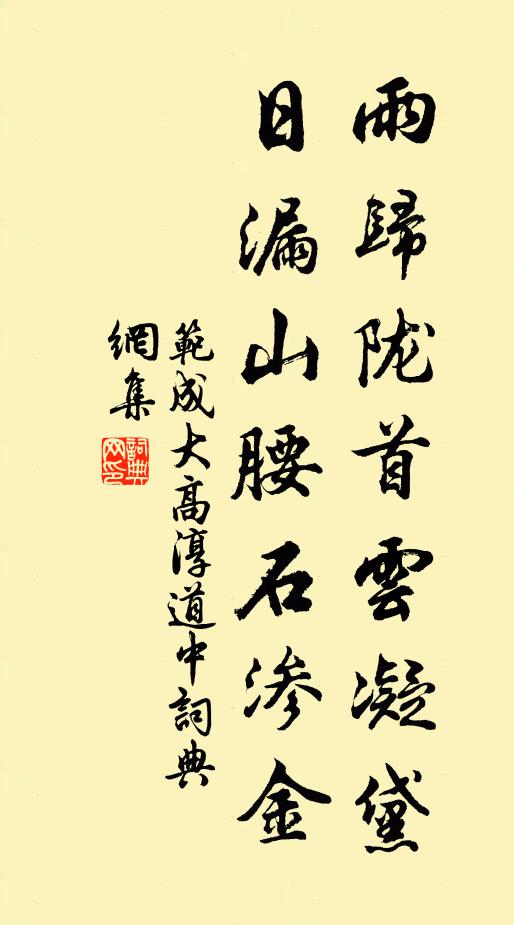 雨歸陇首雲凝黛
日漏山腰石渗金
範成大高淳道中詞典
網集
詞典網印